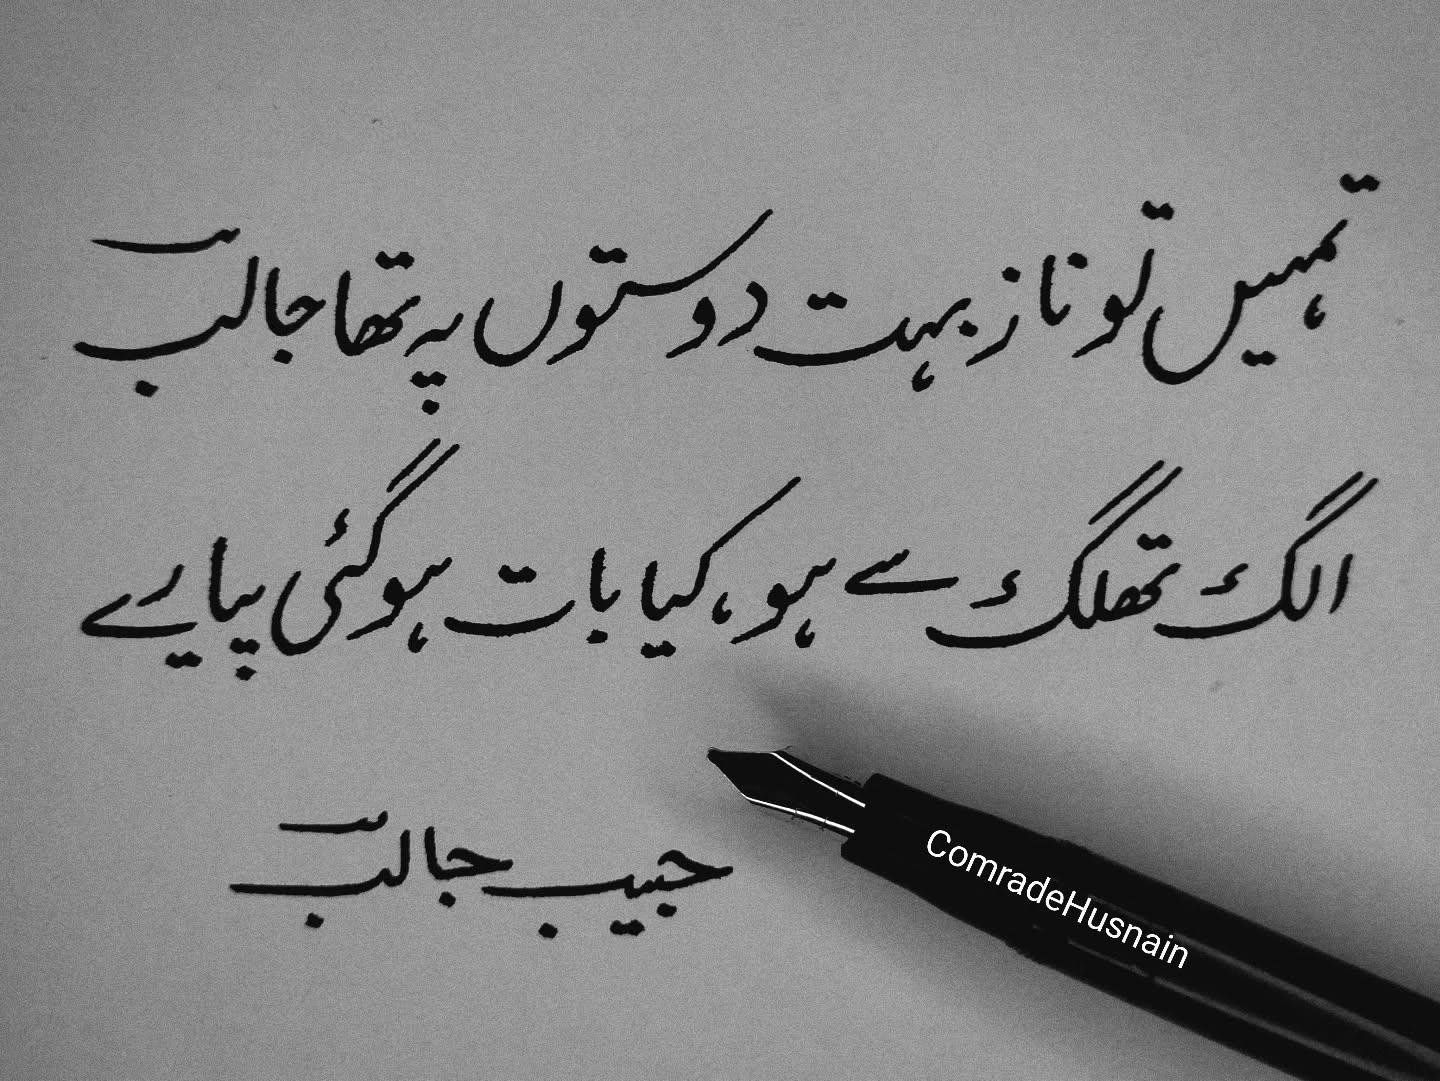 تمہیں تو ناز بہت دوستوں پہ تھا جالبؔ
الگ تھلگ سے ہو، کیا بات ہو گئی پیارے
حبیب جالبؔ
ComradeHusnain